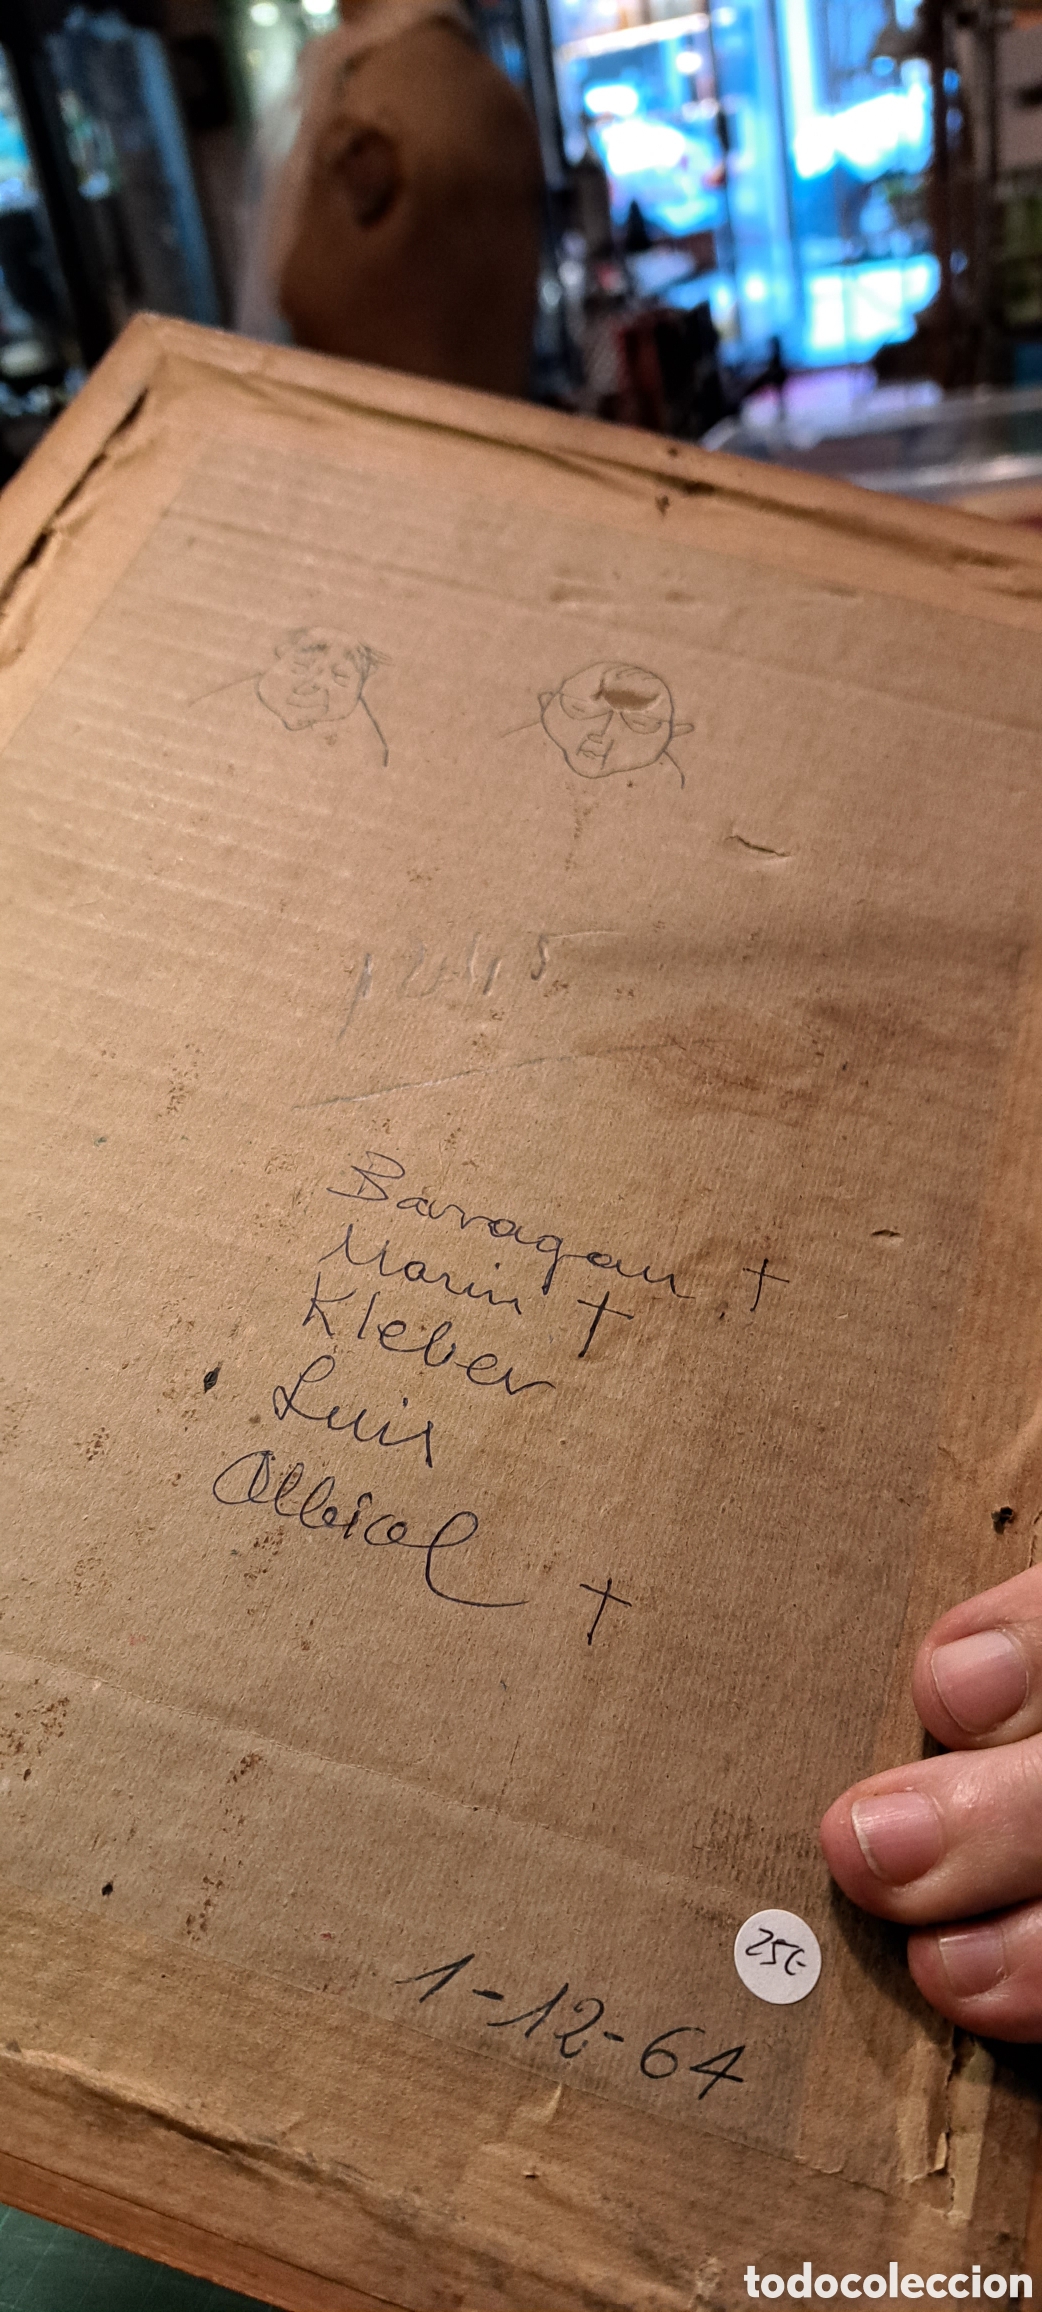 1245
Baragan †
Marin †
Kleber
Luis
Albiol †
25€
1-12-64
todocoleccion